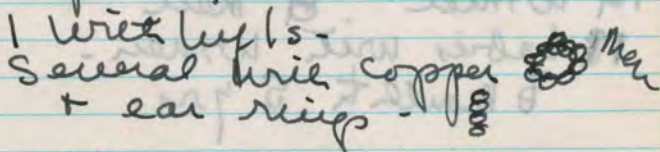 1 with
Several wire copper men
+ ear rings -